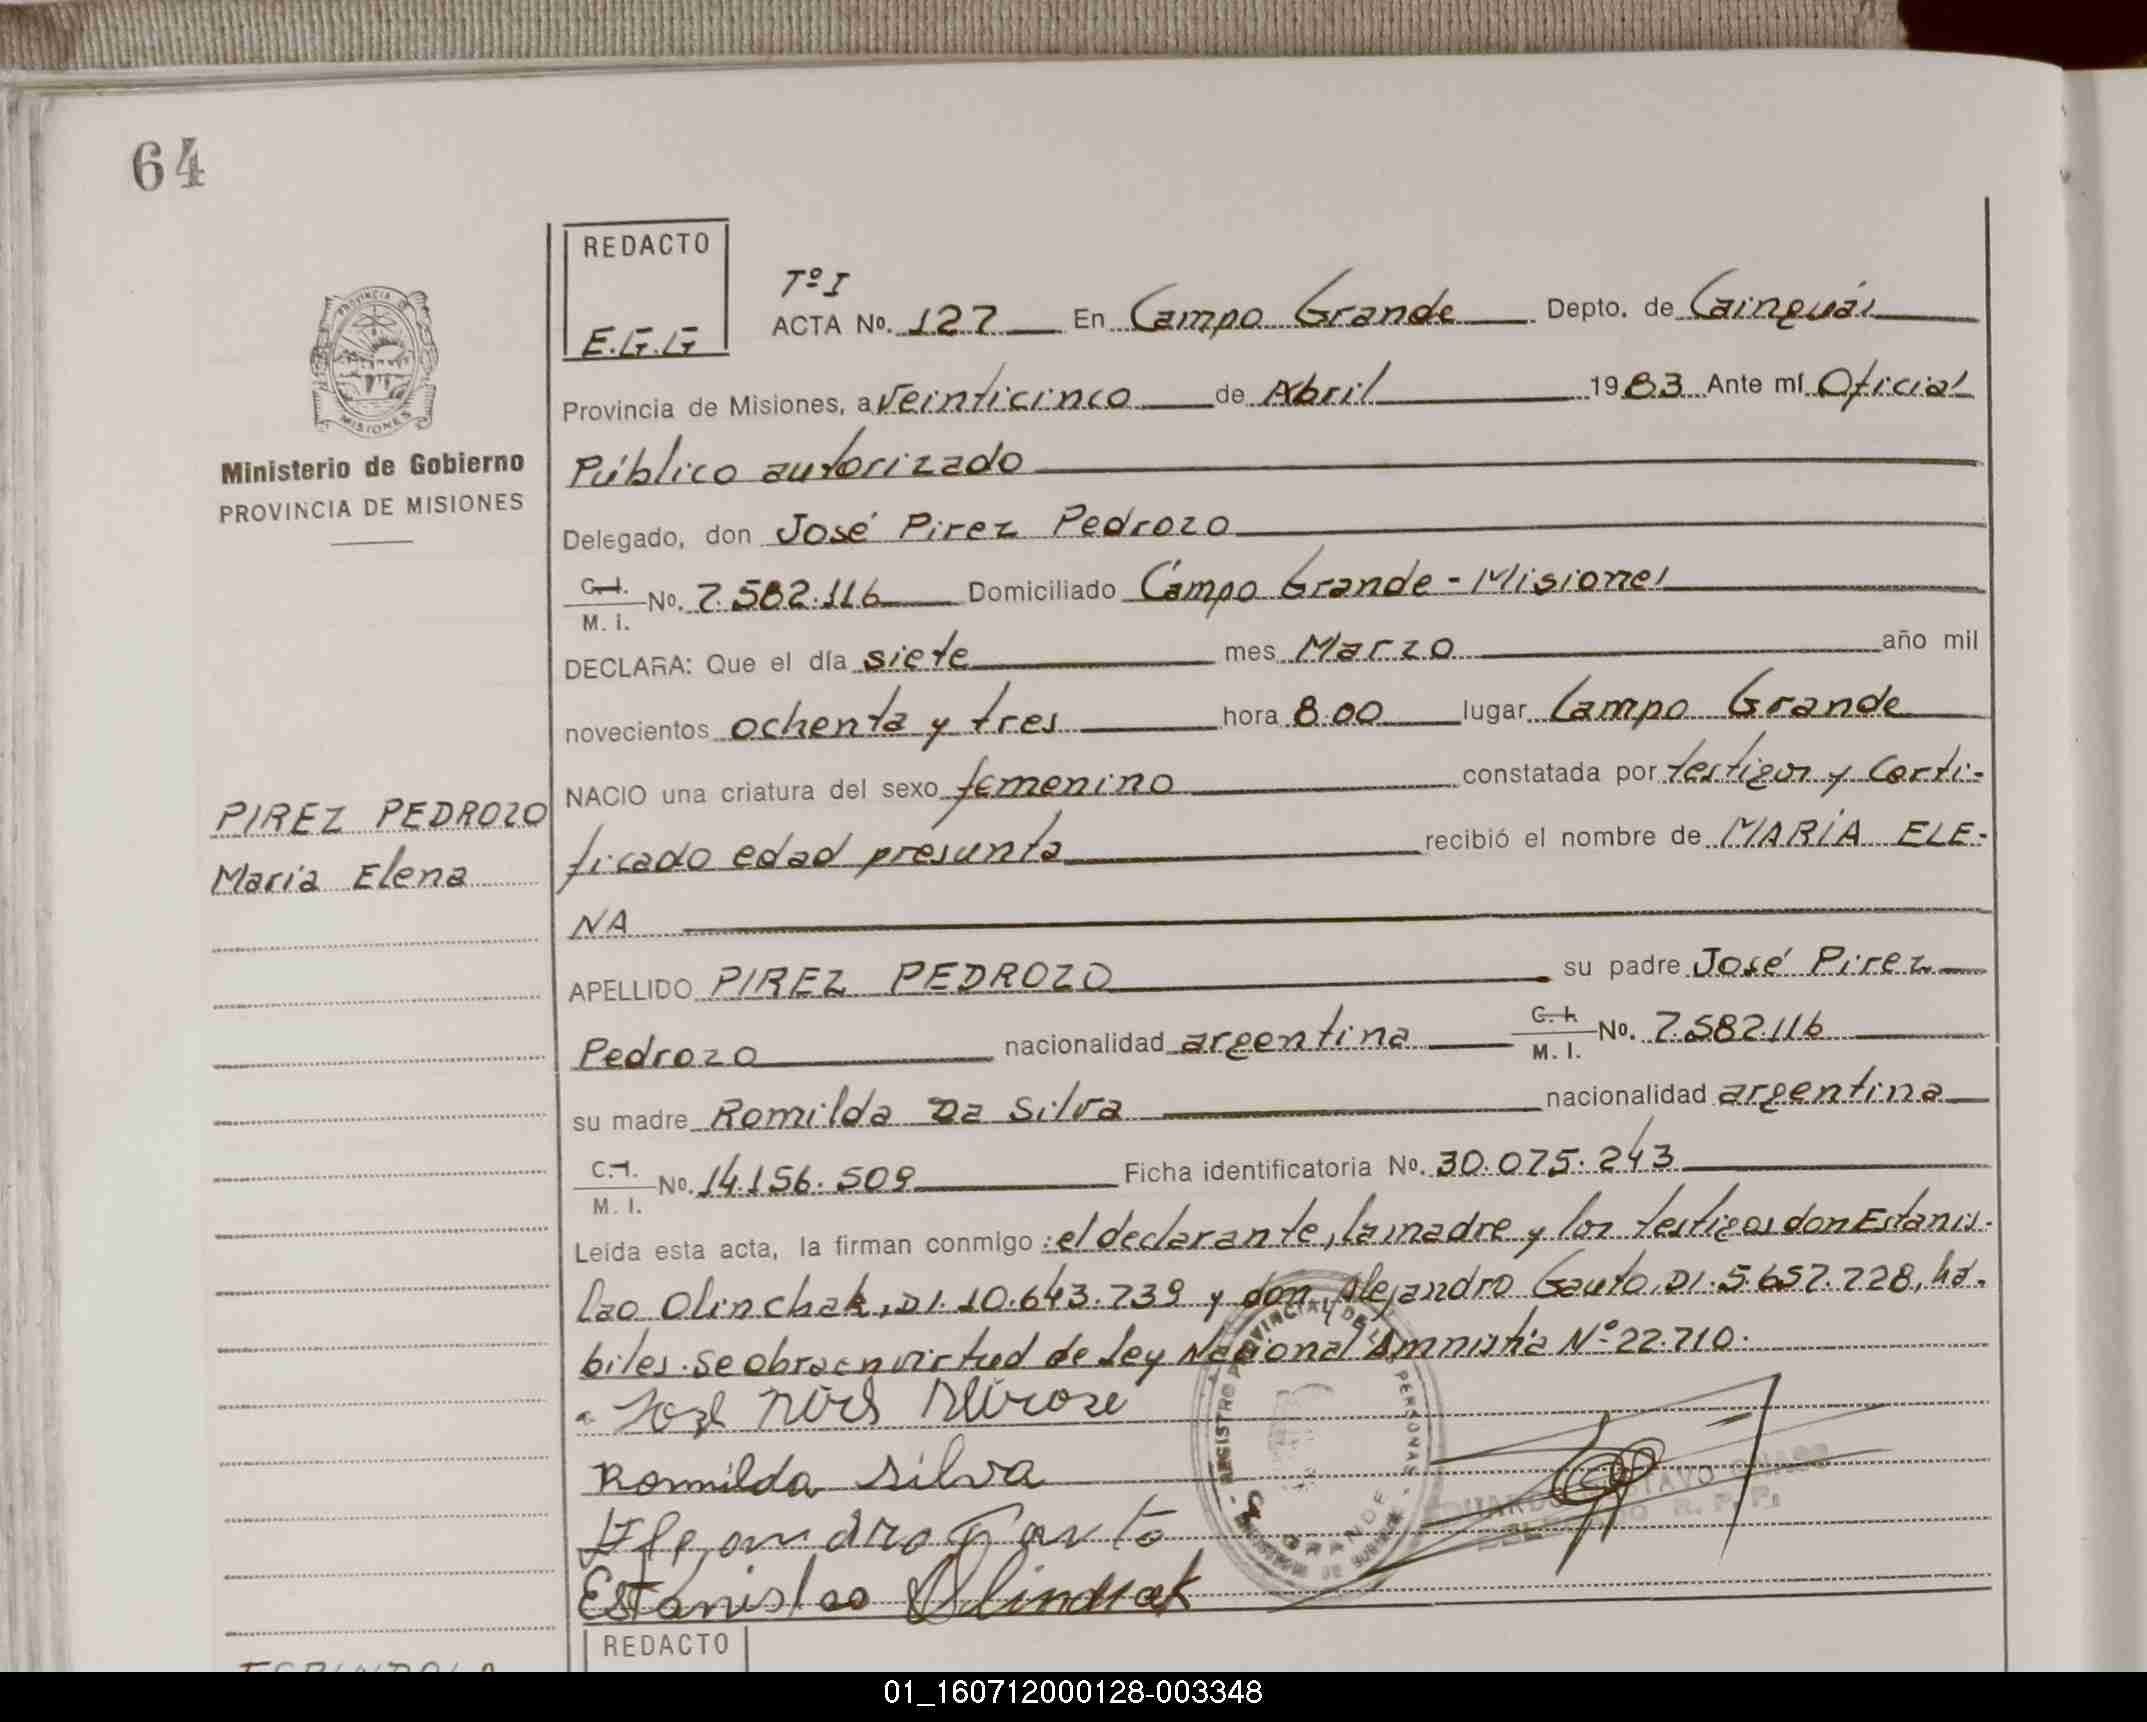 64
REDACTO
E.G.G
Tº I
ACTA No. 127 En Campo Grande Depto. de Cainguás
Provincia de Misiones, a Veinticinco de Abril 1983 Ante mí Oficial
Público autorizado
Delegado, don José Pirez Pedrozo
C.I. M. I. No. 7.582.116 Domiciliado Campo Grande - Misiones
DECLARA: Que el día siete mes Marzo año mil
novecientos ochenta y tres hora 8.00 lugar Campo Grande
NACIO una criatura del sexo femenino constatada por testigos y Certi-
ficado edad presunta recibió el nombre de MARÍA ELE-
NA
APELLIDO PIREZ PEDROZO su padre José Pirez
Pedrozo nacionalidad argentina C. I. M. I. No. 7.582.116
su madre Romilda Da Silva nacionalidad argentina
C. I. M. I. No. 14.156.509 Ficha identificatoria No. 30.075.243
Leída esta acta, la firman conmigo: el declarante, la madre y los testigos don Estanis-
lao Olinchak, DI. 10.643.739 y don Alejandro Gauto, DI. 5.657.728, há-
biles. Se obra en virtud de Ley Nacional Amnistía Nº 22.710.
Romilda Silva
Alejandro Gauto
Estanislao Olinchak
REGISTRO PROVINCIAL DE LAS PERSONAS
GRANDE
REDACTO
PROVINCIA DE
MISIONES
Ministerio de Gobierno
PROVINCIA DE MISIONES
PIREZ PEDROZO
María Elena
01_160712000128-003348